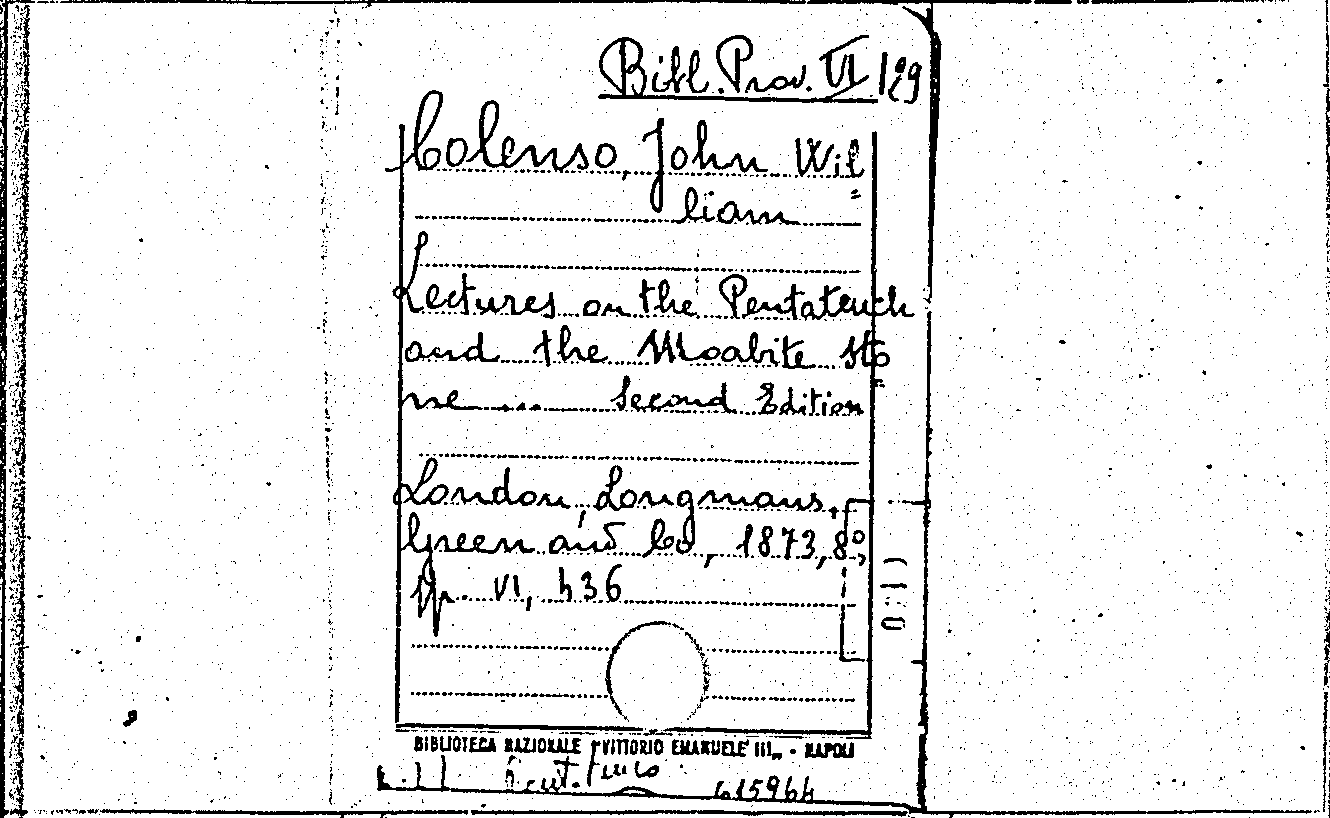 Bibl. Prov. VI /29
Colenso, John Wil=
liam
Lectures on the Pentateuch
and the Moabite sto=
ne ... Second Edition
London, Longmans,
Green and Co, 1873, 8º,
pp. VI, 436
BIBLIOTECA NAZIONALE "VITTORIO EMANUELE III" - NAPOLI
615964